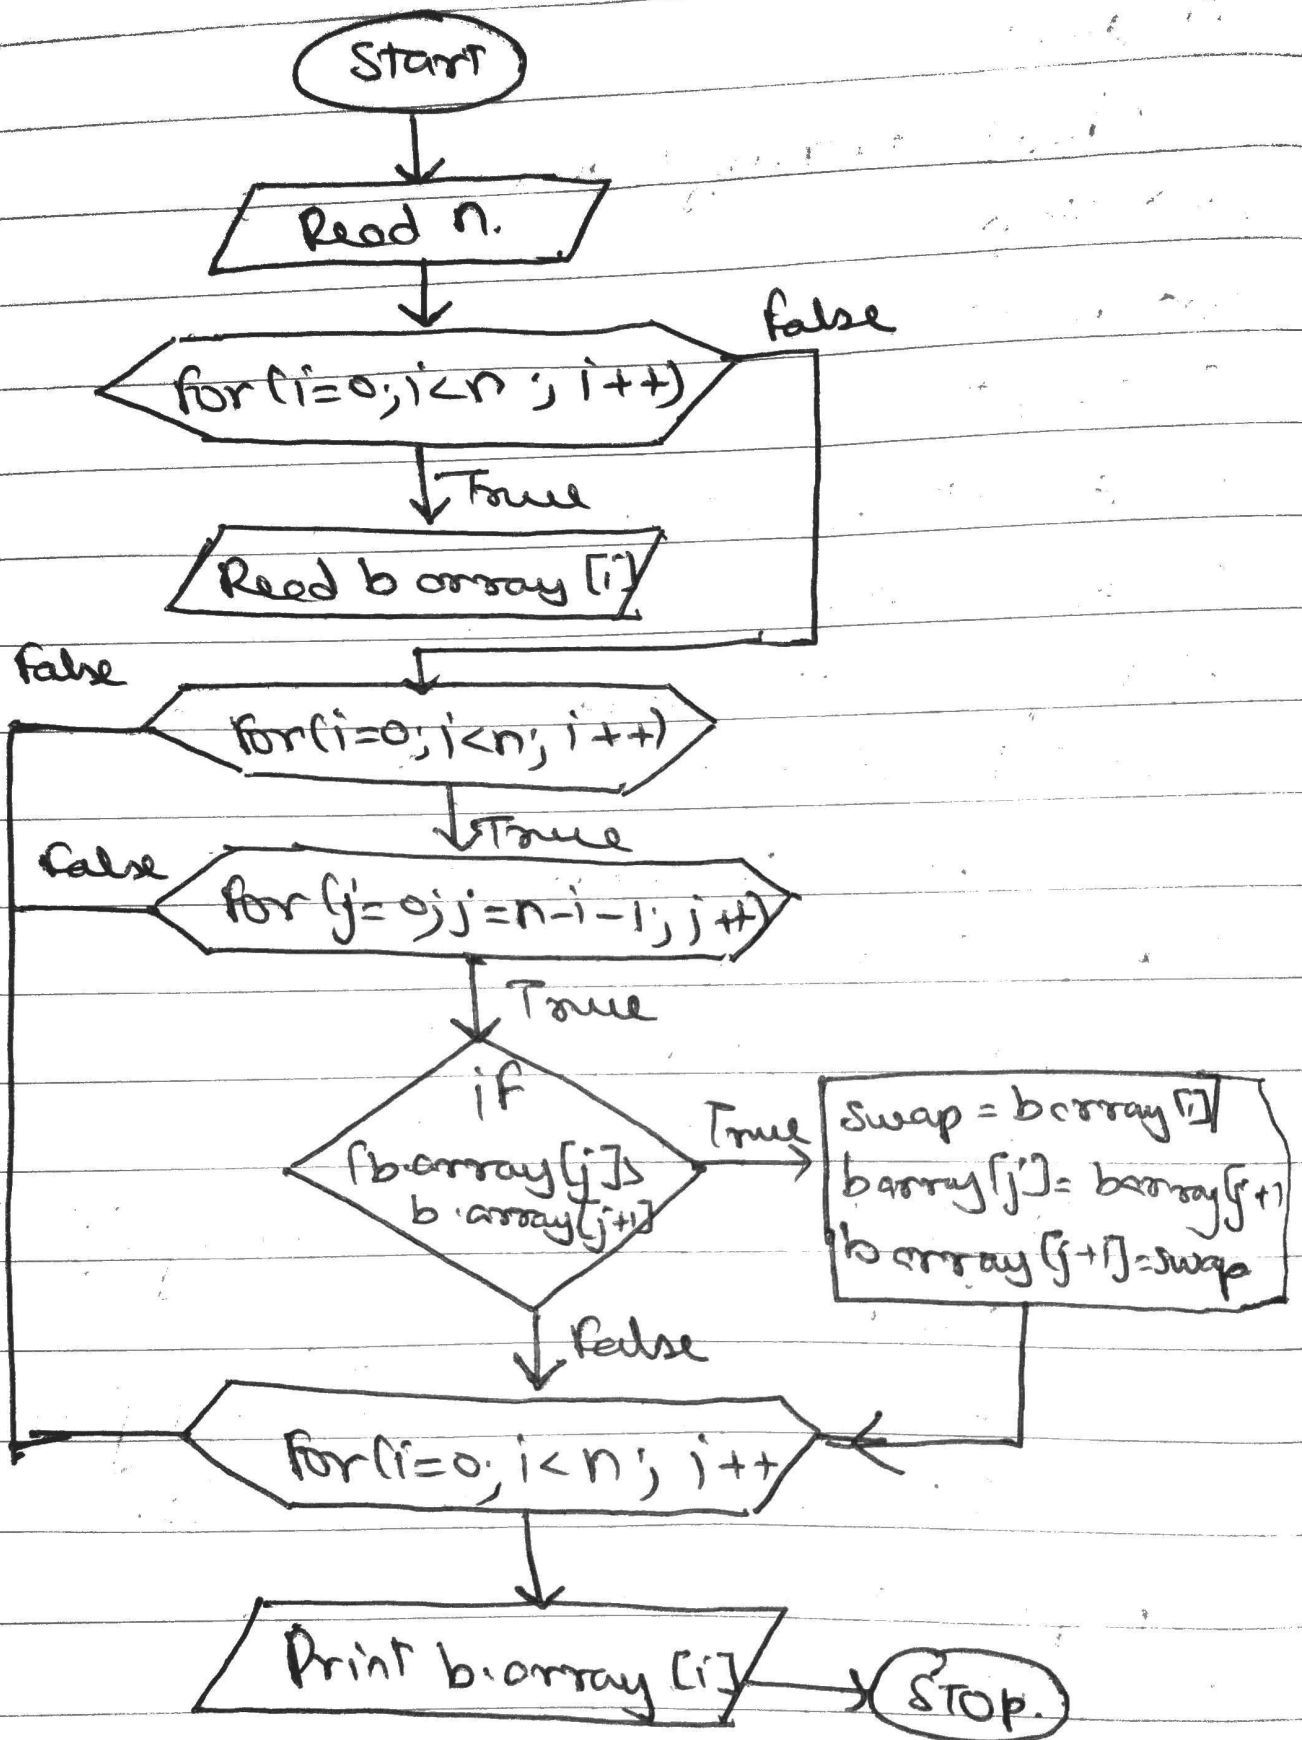 Start
Read n.
False
for (i=0; i<n ; i++)
True
Read b array [i]
False
for(i=0; i<n; i++)
True
False
for (j=0; j=n-i-1; j++)
True
if
(b.array[j]>
b.array[j+1]
True
swap = barray[i]
barray[j]= barray[j+1
barray[j+1]=swap
False
for(i=0; i<n; i++
Print b.array [i]
STOP.